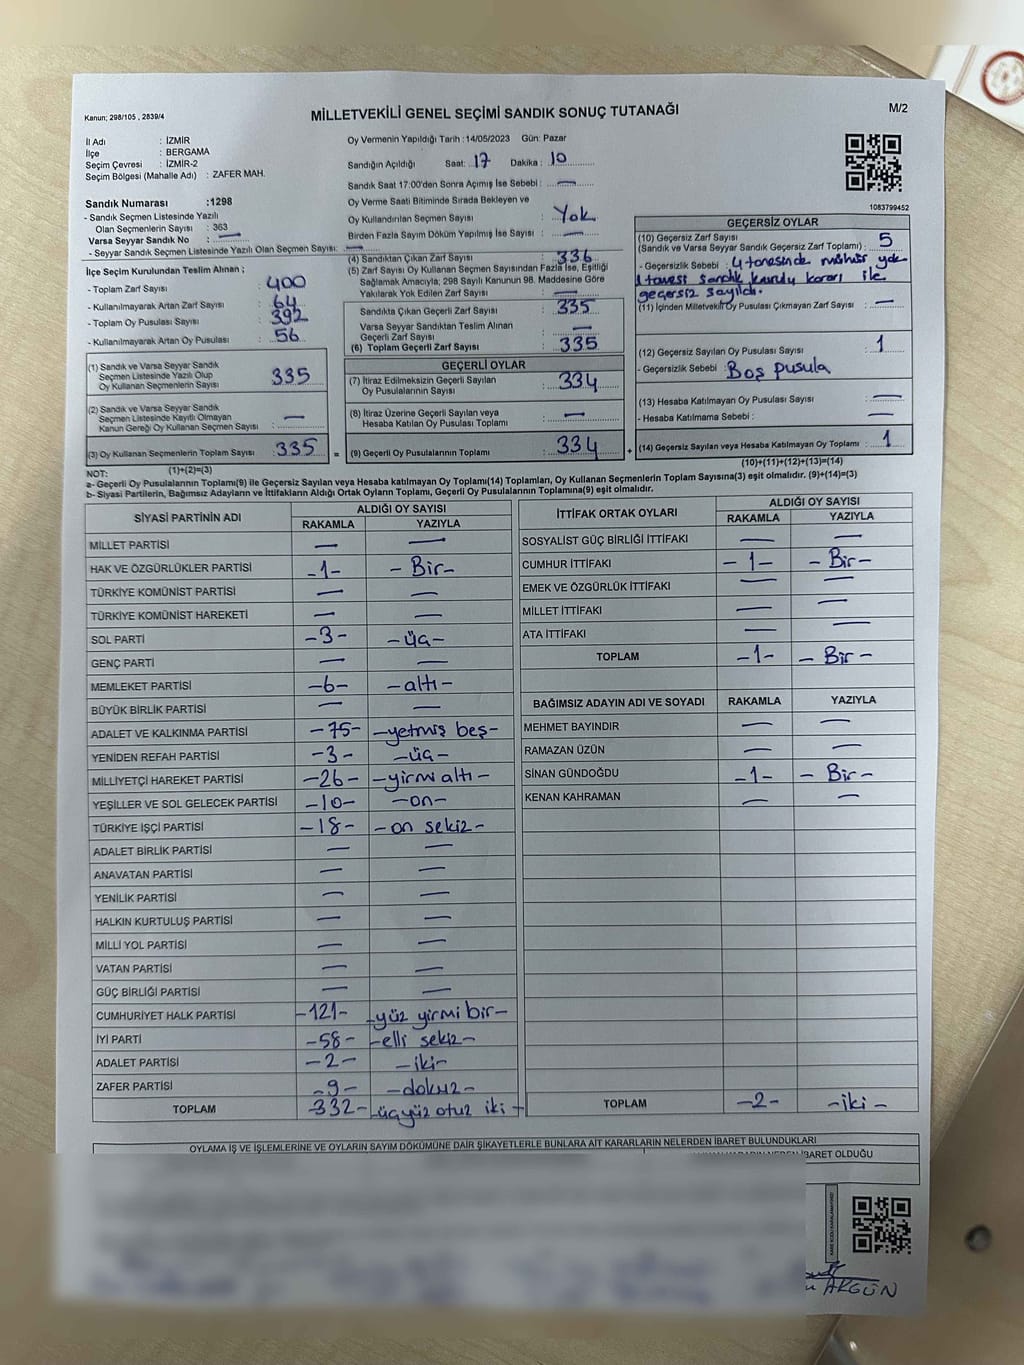 Kanun; 298/105 , 2839/4
MİLLETVEKİLİ GENEL SEÇİMİ SANDIK SONUÇ TUTANAĞI
M/2
İl Adı : İZMİR
İlçe : BERGAMA
Seçim Çevresi : İZMİR-2
Seçim Bölgesi (Mahalle Adı) : ZAFER MAH.
Oy Vermenin Yapıldığı Tarih : 14/05/2023 Gün: Pazar
Sandığın Açıldığı Saat: 17 Dakika : 10
Sandık Saat 17:00'den Sonra Açımış İse Sebebi : —
Oy Verme Saati Bitiminde Sırada Bekleyen ve
Oy Kullandırılan Seçmen Sayısı : Yok
Birden Fazla Sayım Döküm Yapılmış İse Sayısı : —
1083799452
Sandık Numarası :1298
- Sandık Seçmen Listesinde Yazılı
Olan Seçmenlerin Sayısı : 363
Varsa Seyyar Sandık No : —
- Seyyar Sandık Seçmen Listesinde Yazılı Olan Seçmen Sayısı: —
İlçe Seçim Kurulundan Teslim Alınan ;
- Toplam Zarf Sayısı : 400
- Kullanılmayarak Artan Zarf Sayısı : 64
- Toplam Oy Pusulası Sayısı : 392
- Kullanılmayarak Artan Oy Pusulası : 56
(1) Sandık ve Varsa Seyyar Sandık
Seçmen Listesinde Yazılı Olup
Oy Kullanan Seçmenlerin Sayısı : 335
(2) Sandık ve Varsa Seyyar Sandık
Seçmen Listesinde Kayıtlı Olmayan
Kanun Gereği Oy Kullanan Seçmen Sayısı : —
(3) Oy Kullanan Seçmenlerin Toplam Sayısı : 335 =
(4) Sandıktan Çıkan Zarf Sayısı : 336
(5) Zarf Sayısı Oy Kullanan Seçmen Sayısından Fazla İse, Eşitliği
Sağlamak Amacıyla; 298 Sayılı Kanunun 98. Maddesine Göre
Yakılarak Yok Edilen Zarf Sayısı : —
Sandıkta Çıkan Geçerli Zarf Sayısı : 335
Varsa Seyyar Sandıktan Teslim Alınan
Geçerli Zarf Sayısı : —
(6) Toplam Geçerli Zarf Sayısı : 335
GEÇERLİ OYLAR
(7) İtiraz Edilmeksizin Geçerli Sayılan
Oy Pusulalarının Sayısı : 334
(8) İtiraz Üzerine Geçerli Sayılan veya
Hesaba Katılan Oy Pusulası Toplamı : —
(9) Geçerli Oy Pusulalarının Toplamı : 334 +
GEÇERSİZ OYLAR
(10) Geçersiz Zarf Sayısı
(Sandık ve Varsa Seyyar Sandık Geçersiz Zarf Toplamı) : 5
- Geçersizlik Sebebi : 4 tanesinde mühür yok
1 tanesi sandık kurulu kararı ile
geçersiz sayıldı.
(11) İçinden Milletvekili Oy Pusulası Çıkmayan Zarf Sayısı : —
(12) Geçersiz Sayılan Oy Pusulası Sayısı : 1
- Geçersizlik Sebebi : Boş pusula
(13) Hesaba Katılmayan Oy Pusulası Sayısı : —
- Hesaba Katılmama Sebebi : —
(14) Geçersiz Sayılan veya Hesaba Katılmayan Oy Toplamı : 1
NOT: (1)+(2)=(3) (10)+(11)+(12)+(13)=(14)
a- Geçerli Oy Pusulalarının Toplamı(9) ile Geçersiz Sayılan veya Hesaba katılmayan Oy Toplamı(14) Toplamları, Oy Kullanan Seçmenlerin Toplam Sayısına(3) eşit olmalıdır. (9)+(14)=(3)
b- Siyasi Partilerin, Bağımsız Adayların ve İttifakların Aldığı Ortak Oyların Toplamı, Geçerli Oy Pusulalarının Toplamına(9) eşit olmalıdır.
SİYASİ PARTİNİN ADI ALDIĞI OY SAYISI
RAKAMLA YAZIYLA
MİLLET PARTİSİ — —
HAK VE ÖZGÜRLÜKLER PARTİSİ -1- - Bir-
TÜRKİYE KOMÜNİST PARTİSİ — —
TÜRKİYE KOMÜNİST HAREKETİ — —
SOL PARTİ -3- -üç-
GENÇ PARTİ — —
MEMLEKET PARTİSİ -6- -altı-
BÜYÜK BİRLİK PARTİSİ — —
ADALET VE KALKINMA PARTİSİ -75- -yetmiş beş-
YENİDEN REFAH PARTİSİ -3- -üç-
MİLLİYETÇİ HAREKET PARTİSİ -26- -yirmi altı-
YEŞİLLER VE SOL GELECEK PARTİSİ -10- -on-
TÜRKİYE İŞÇİ PARTİSİ -18- -on sekiz-
ADALET BİRLİK PARTİSİ — —
ANAVATAN PARTİSİ — —
YENİLİK PARTİSİ — —
HALKIN KURTULUŞ PARTİSİ — —
MİLLİ YOL PARTİSİ — —
VATAN PARTİSİ — —
GÜÇ BİRLİĞİ PARTİSİ — —
CUMHURİYET HALK PARTİSİ -121- -yüz yirmi bir-
İYİ PARTİ -58- -elli sekiz-
ADALET PARTİSİ -2- -iki-
ZAFER PARTİSİ -9- -dokuz-
TOPLAM -332- -üçyüz otuz iki-
İTTİFAK ORTAK OYLARI ALDIĞI OY SAYISI
RAKAMLA YAZIYLA
SOSYALİST GÜÇ BİRLİĞİ İTTİFAKI — —
CUMHUR İTTİFAKI -1- - Bir-
EMEK VE ÖZGÜRLÜK İTTİFAKI — —
MİLLET İTTİFAKI — —
ATA İTTİFAKI — —
TOPLAM -1- - Bir -
BAĞIMSIZ ADAYIN ADI VE SOYADI RAKAMLA YAZIYLA
MEHMET BAYINDIR — —
RAMAZAN ÜZÜN — —
SİNAN GÜNDOĞDU -1- - Bir-
KENAN KAHRAMAN — —
TOPLAM -2- -iki-
OYLAMA İŞ VE İŞLEMLERİNE VE OYLARIN SAYIM DÖKÜMÜNE DAİR ŞİKAYETLERLE BUNLARA AİT KARARLARIN NELERDEN İBARET BULUNDUKLARI
İBARET OLDUĞU
AKGÜN